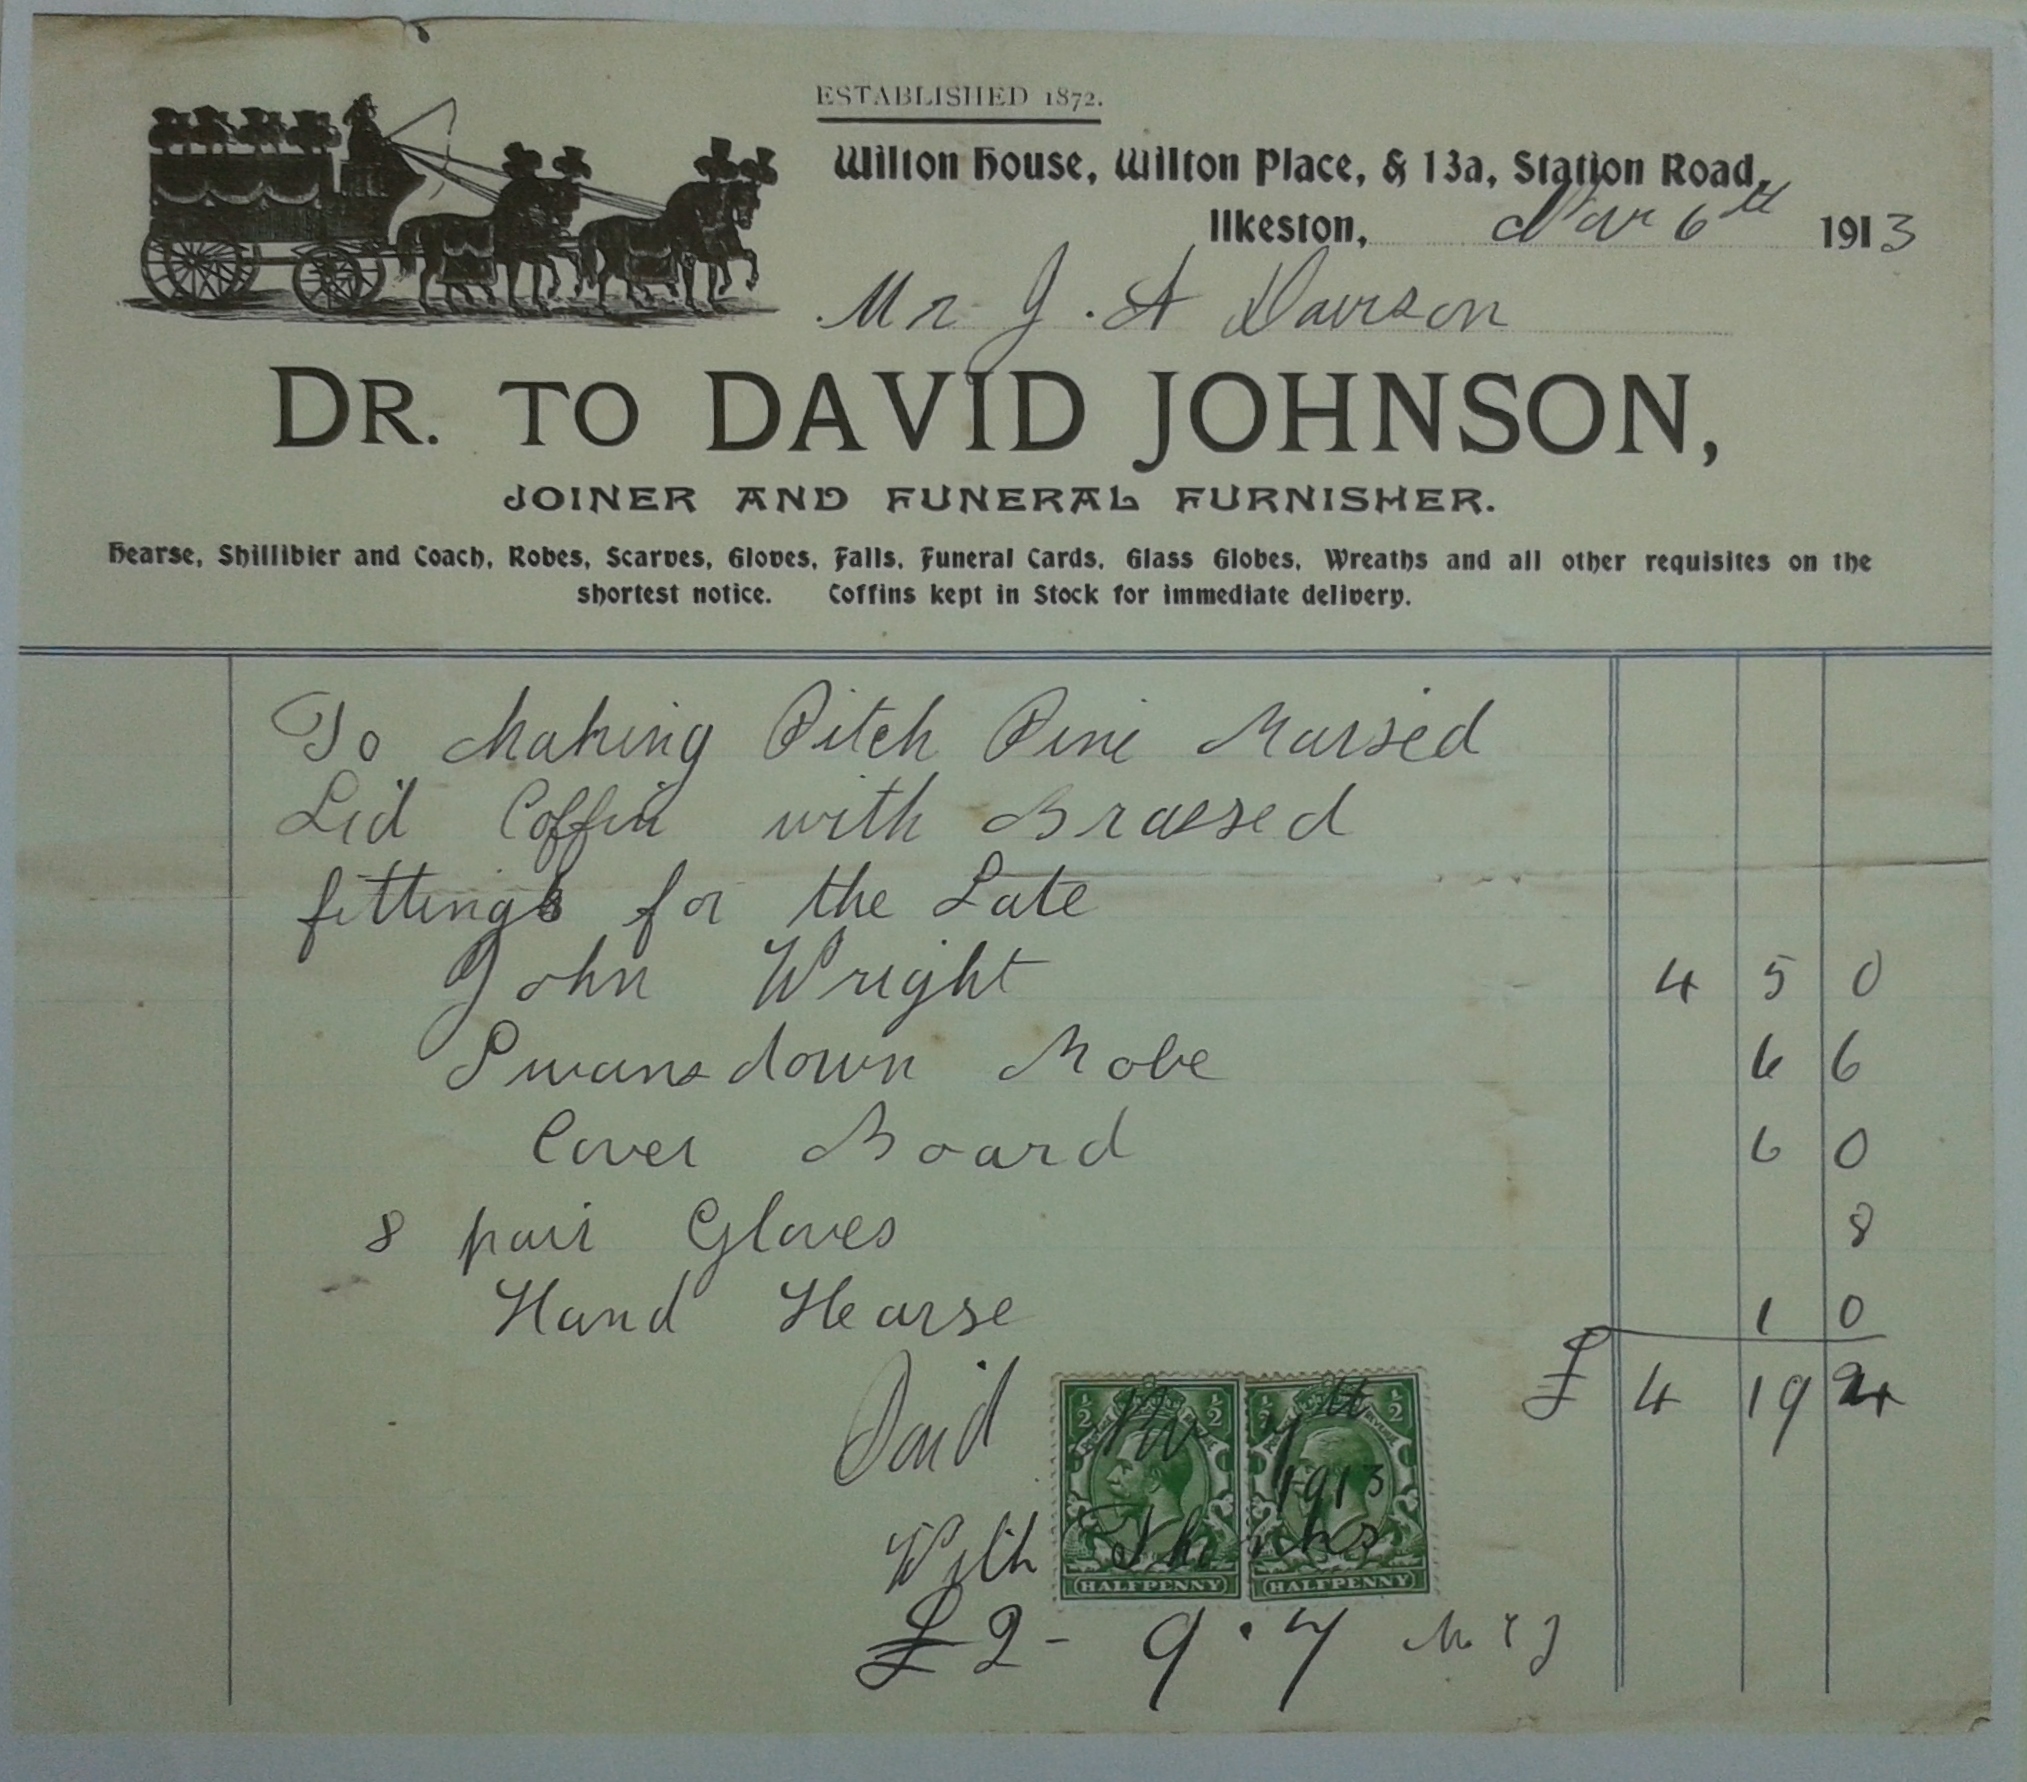 ESTABLISHED 1872.
Wilton House, Wilton Place, & 13a, Station Road,
Ilkeston, Nov 6th 1913
Mr J. A Dawson
DR. TO DAVID JOHNSON,
JOINER AND FUNERAL FURNISHER.
Hearse, Shillibier and Coach, Robes, Scarves, Gloves, Falls, Funeral Cards, Glass Globes, Wreaths and all other requisites on the
shortest notice. Coffins kept in Stock for immediate delivery.
To Making Pitch Pine Raised
Lid Coffin with Brassed
fittings for the Late
John Wright 4 5 0
Swansdown Robe 6 6
Cover Board 6 0
8 pair Gloves 8
Hand Hearse 1 0
£ 4 19
Paid Nov 7th
1913
With Thanks
HALFPENNY HALFPENNY
£2-9.7